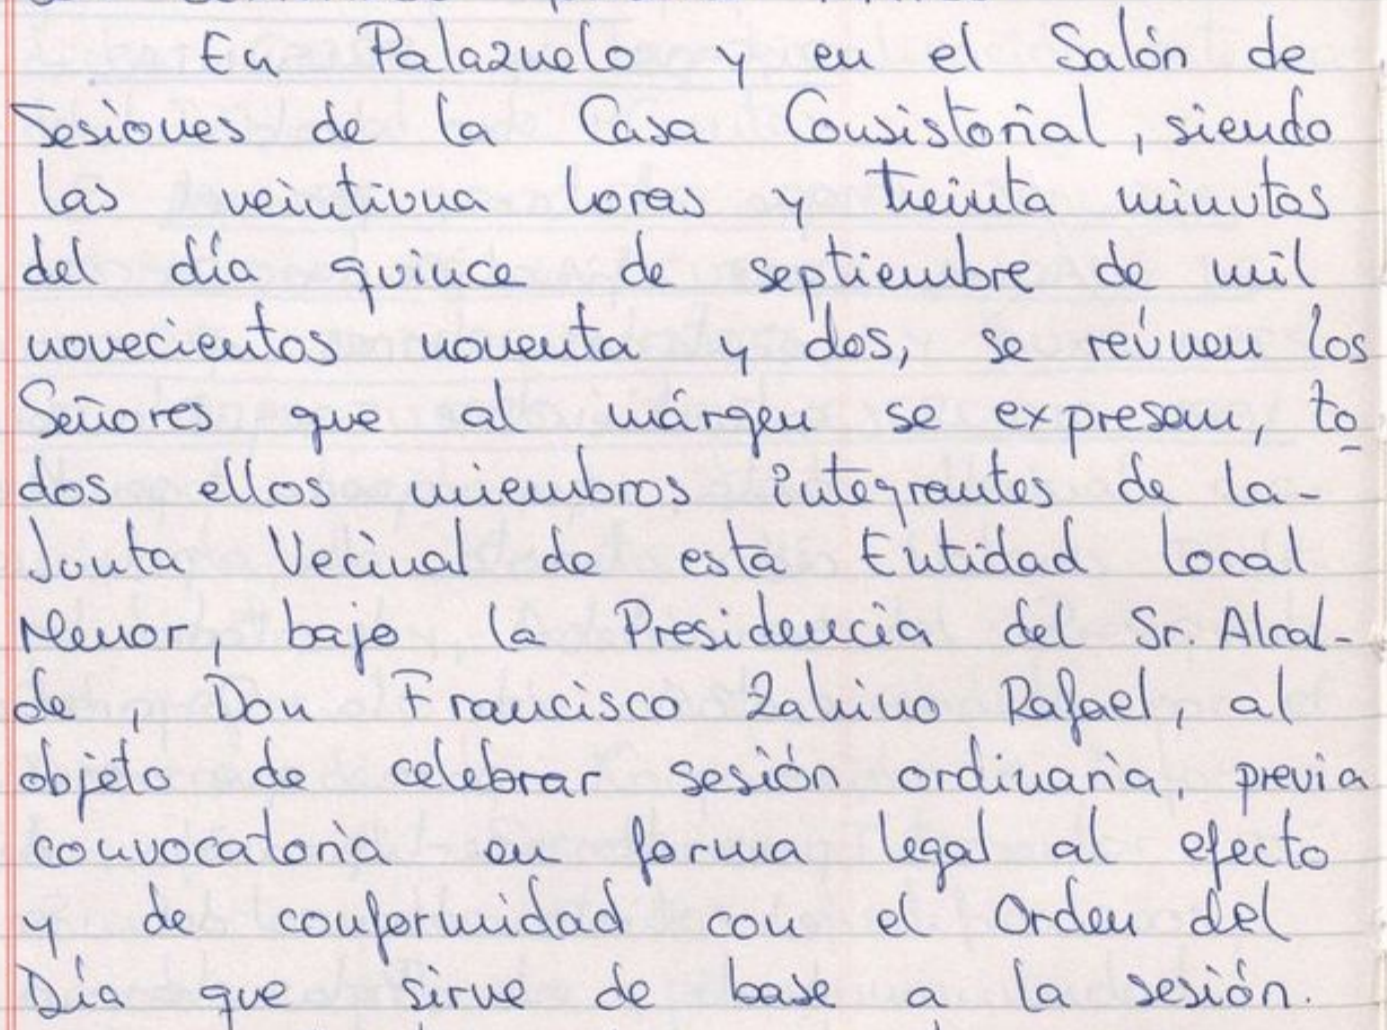 En Palazuelo y en el Salón de
Sesiones de la Casa Consistorial, siendo
las veintiuna horas y treinta minutos
del día quince de septiembre de mil
novecientos noventa y dos, se reúnen los
Señores que al márgen se expresan, to
dos ellos miembros integrantes de la-
Junta Vecinal de esta Entidad Local
Menor, bajo la Presidencia del Sr. Alcal-
de, Don Francisco Zahino Rafael, al
objeto de celebrar sesión ordinaria, previa
convocatoria en forma legal al efecto
y de conformidad con el Orden del
Día que sirve de base a la sesión.